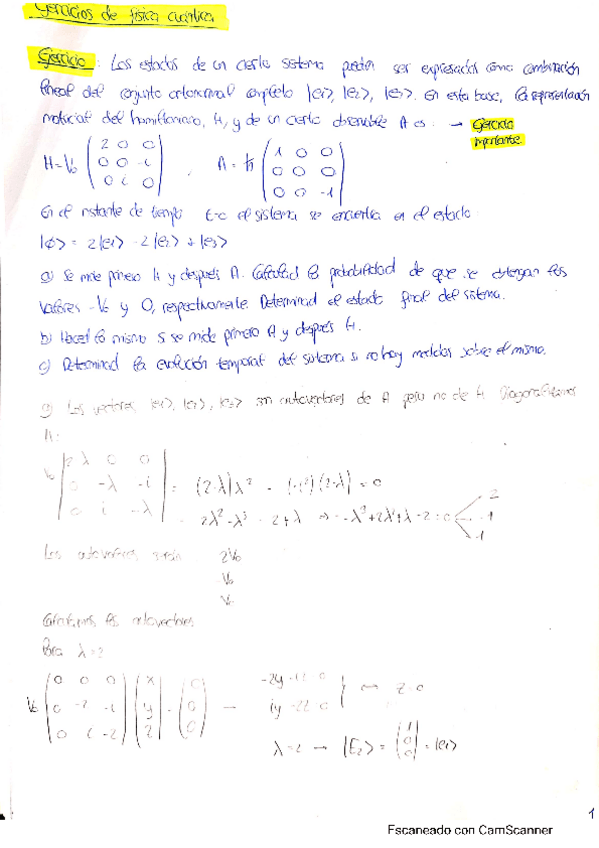 Ejercicios de física cuántica
Ejercicio: Los estados de un cierto sistema pueden ser expresados como combinación
lineal del conjunto ortonormal completo |e1>, |e2>, |e3>. En esta base, la representación
matricial del hamiltoniano, H, y de un cierto observable A es: → Ejercicio
importante
H = V₀ ( 2 0 0 ; 0 0 -i ; 0 i 0 ) , A = ħ ( 1 0 0 ; 0 0 0 ; 0 0 -1 )
En el instante de tiempo t=0 el sistema se encuentra en el estado
|ϕ> = 2|e1> - 2|e2> + |e3>
a) Se mide primero H y después A. Calculad la probabilidad de que se obtengan los
valores -V₀ y 0, respectivamente. Determinad el estado final del sistema.
b) Haced lo mismo si se mide primero A y después H.
c) Determinad la evolución temporal del sistema si no hay medidas sobre el mismo.
a) Los vectores |e1>, |e2>, |e3> son autovectores de A pero no de H. Diagonalizamos
H:
V₀ | 2-λ 0 0 ; 0 -λ -i ; 0 i -λ | = (2-λ)λ² - (-i²)(2-λ) = 0
2λ² - λ³ - 2 + λ ⇒ -λ³ + 2λ² + λ - 2 = 0
2
1
-1
Los autovalores serán 2V₀
V₀
Calculamos los autovectores
Para λ=2
V₀ ( 0 0 0 ; 0 -2 -i ; 0 i -2 ) ( x ; y ; z ) = ( 0 ; 0 ; 0 ) → -2y - iz = 0
iy - 2z = 0
z = 0
λ=2 → |E₂> = ( 1 ; 0 ; 0 ) = |e1>
1
Escaneado con CamScanner